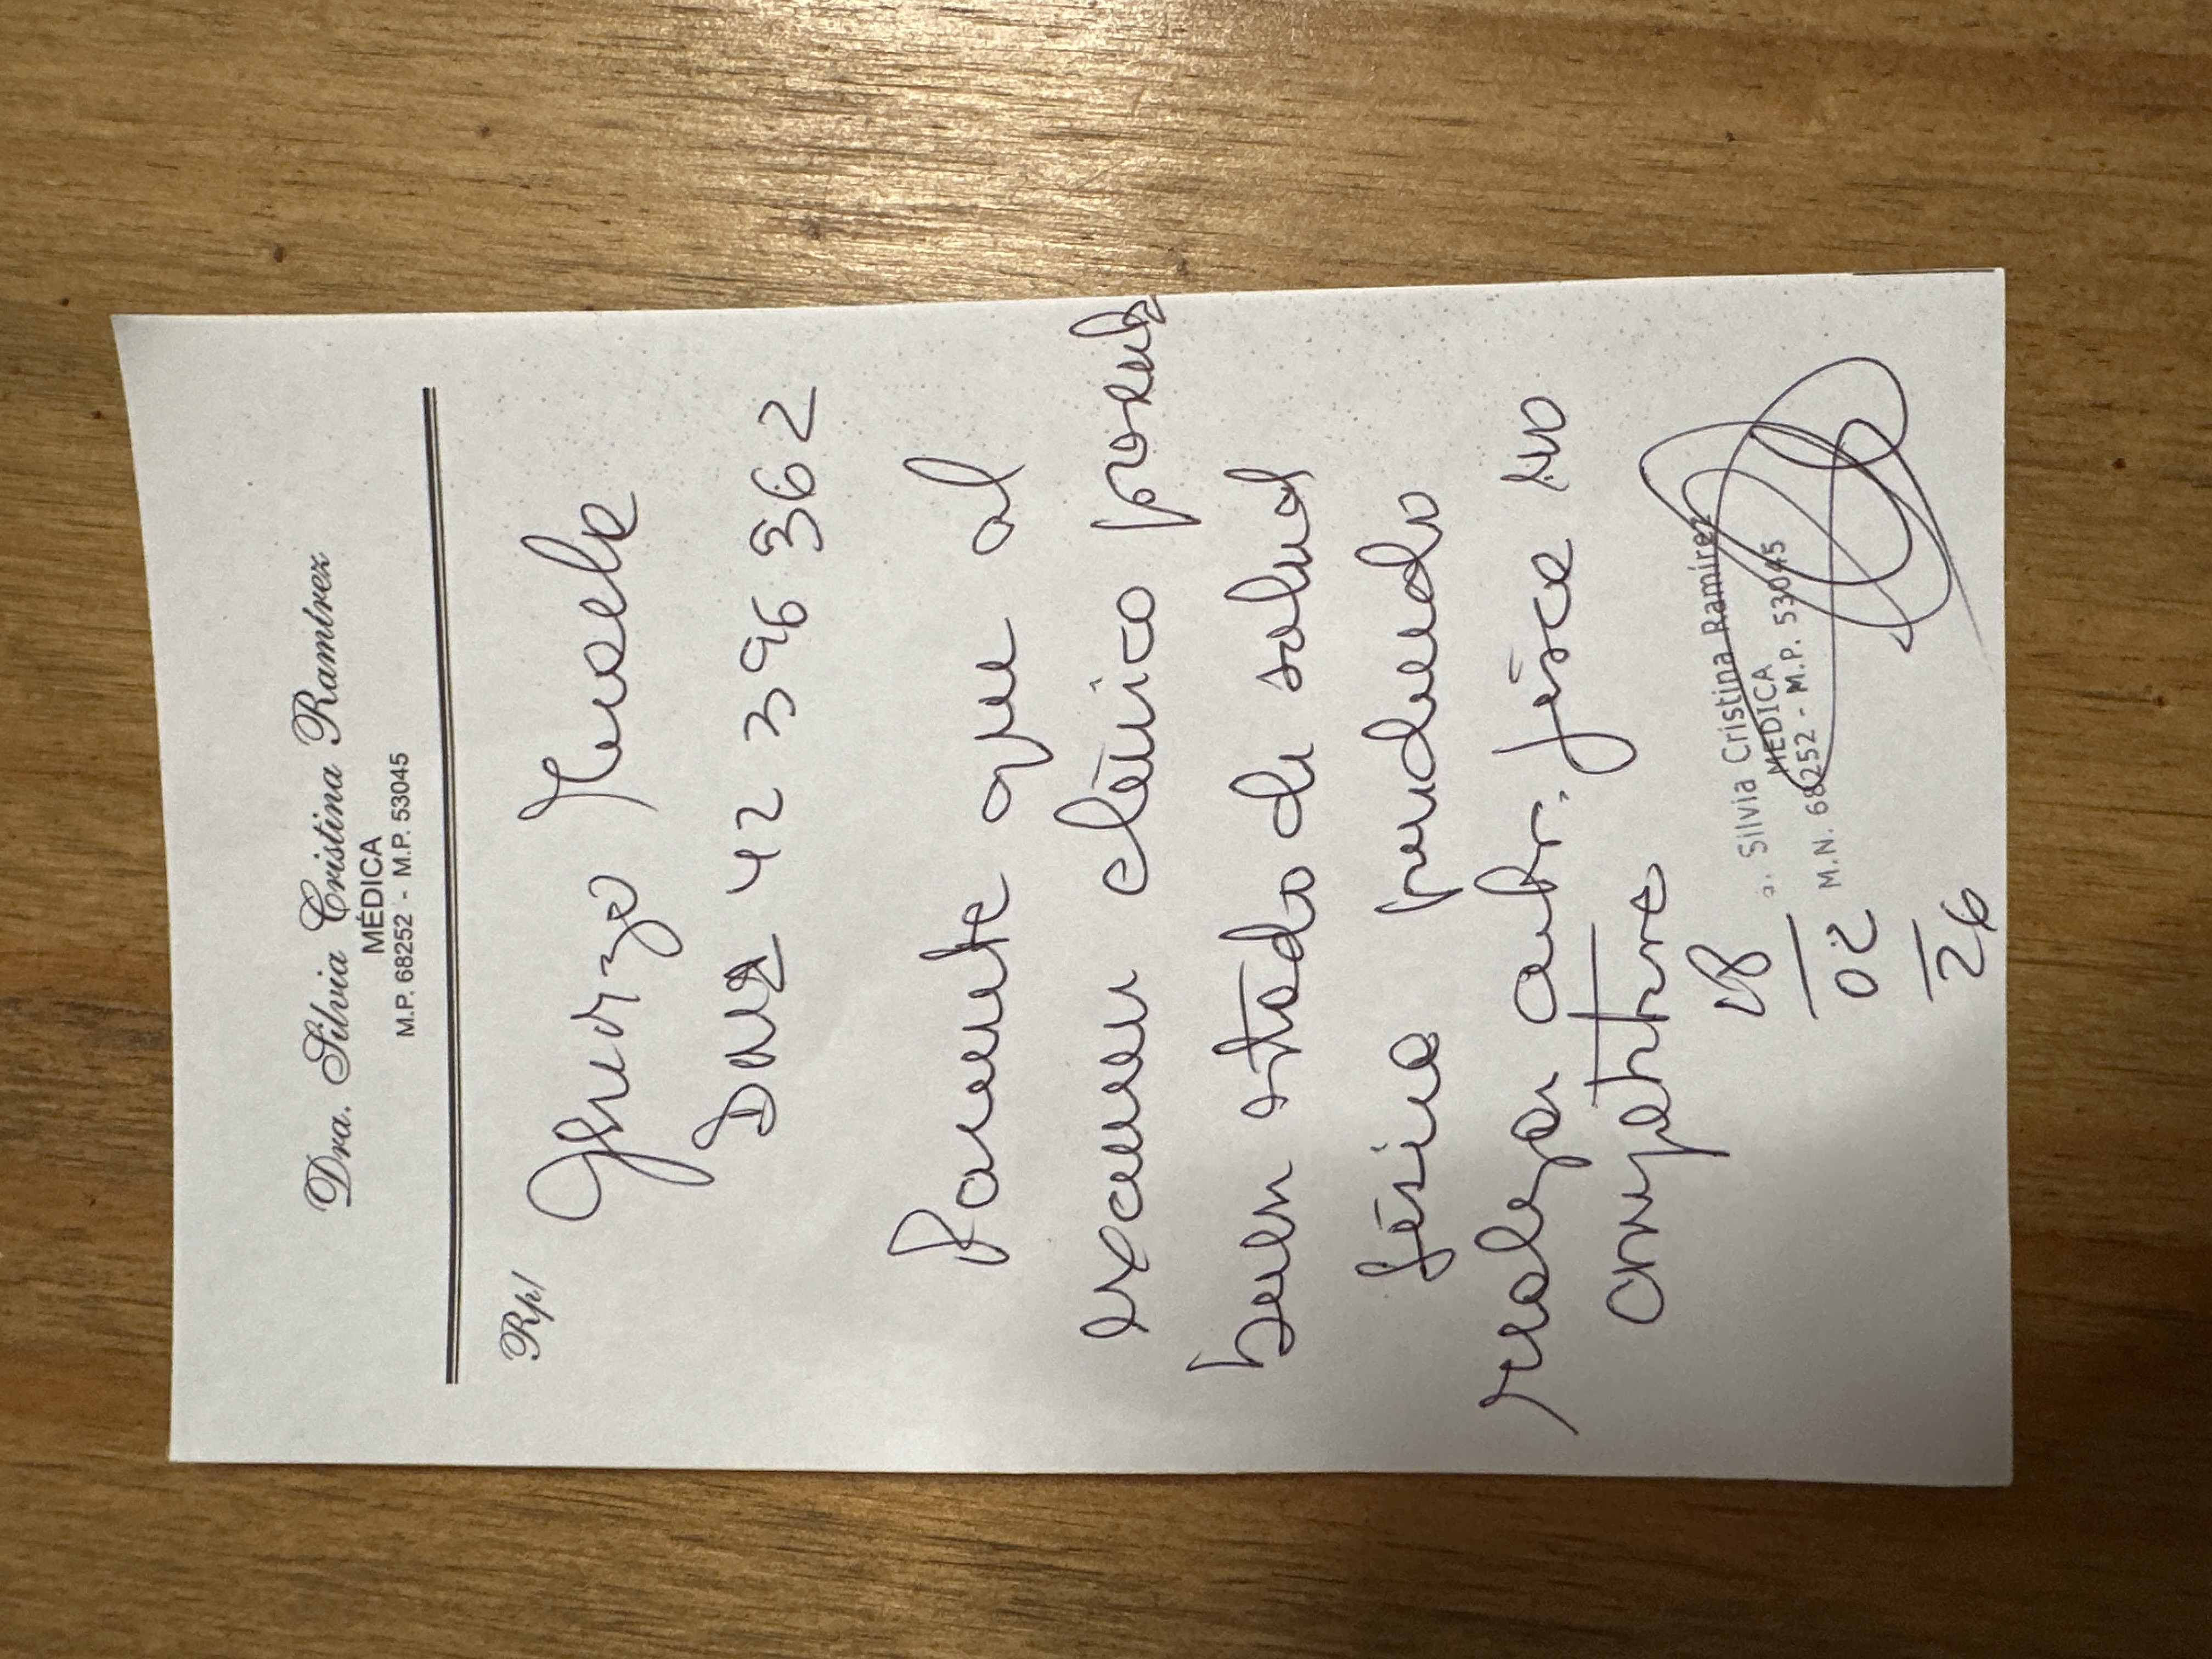 Dra. Silvia Cristina Ramírez
MÉDICA
M.P. 68252 - M.P. 53045
Rp/
42 396 362
Paciente que al
examen clínico presenta
buen estado de salud
física pudiendo
realizar activ. física no
competitiva
18
02
26
Silvia Cristina Ramírez
MEDICA
M.N. 68252 - M.P. 53045